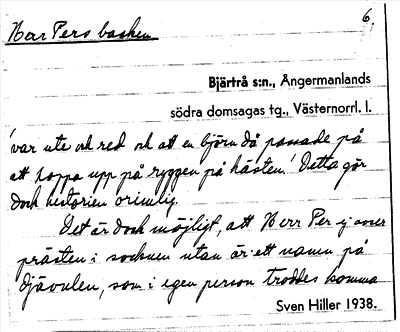 Herr Pers backen
6.
Bjärtrå s:n., Ångermanlands
södra domsagas tg., Västernorrl. l.
var ute och red och att en björn då passade på
att hoppa upp på ryggen på hästen! Detta gör
dock historien orimlig.
Det är dock möjligt, att Herr Per ej avser
prästen i socknen utan är ett namn på
djävulen, som i egen person troddes komma
Sven Hiller 1938.